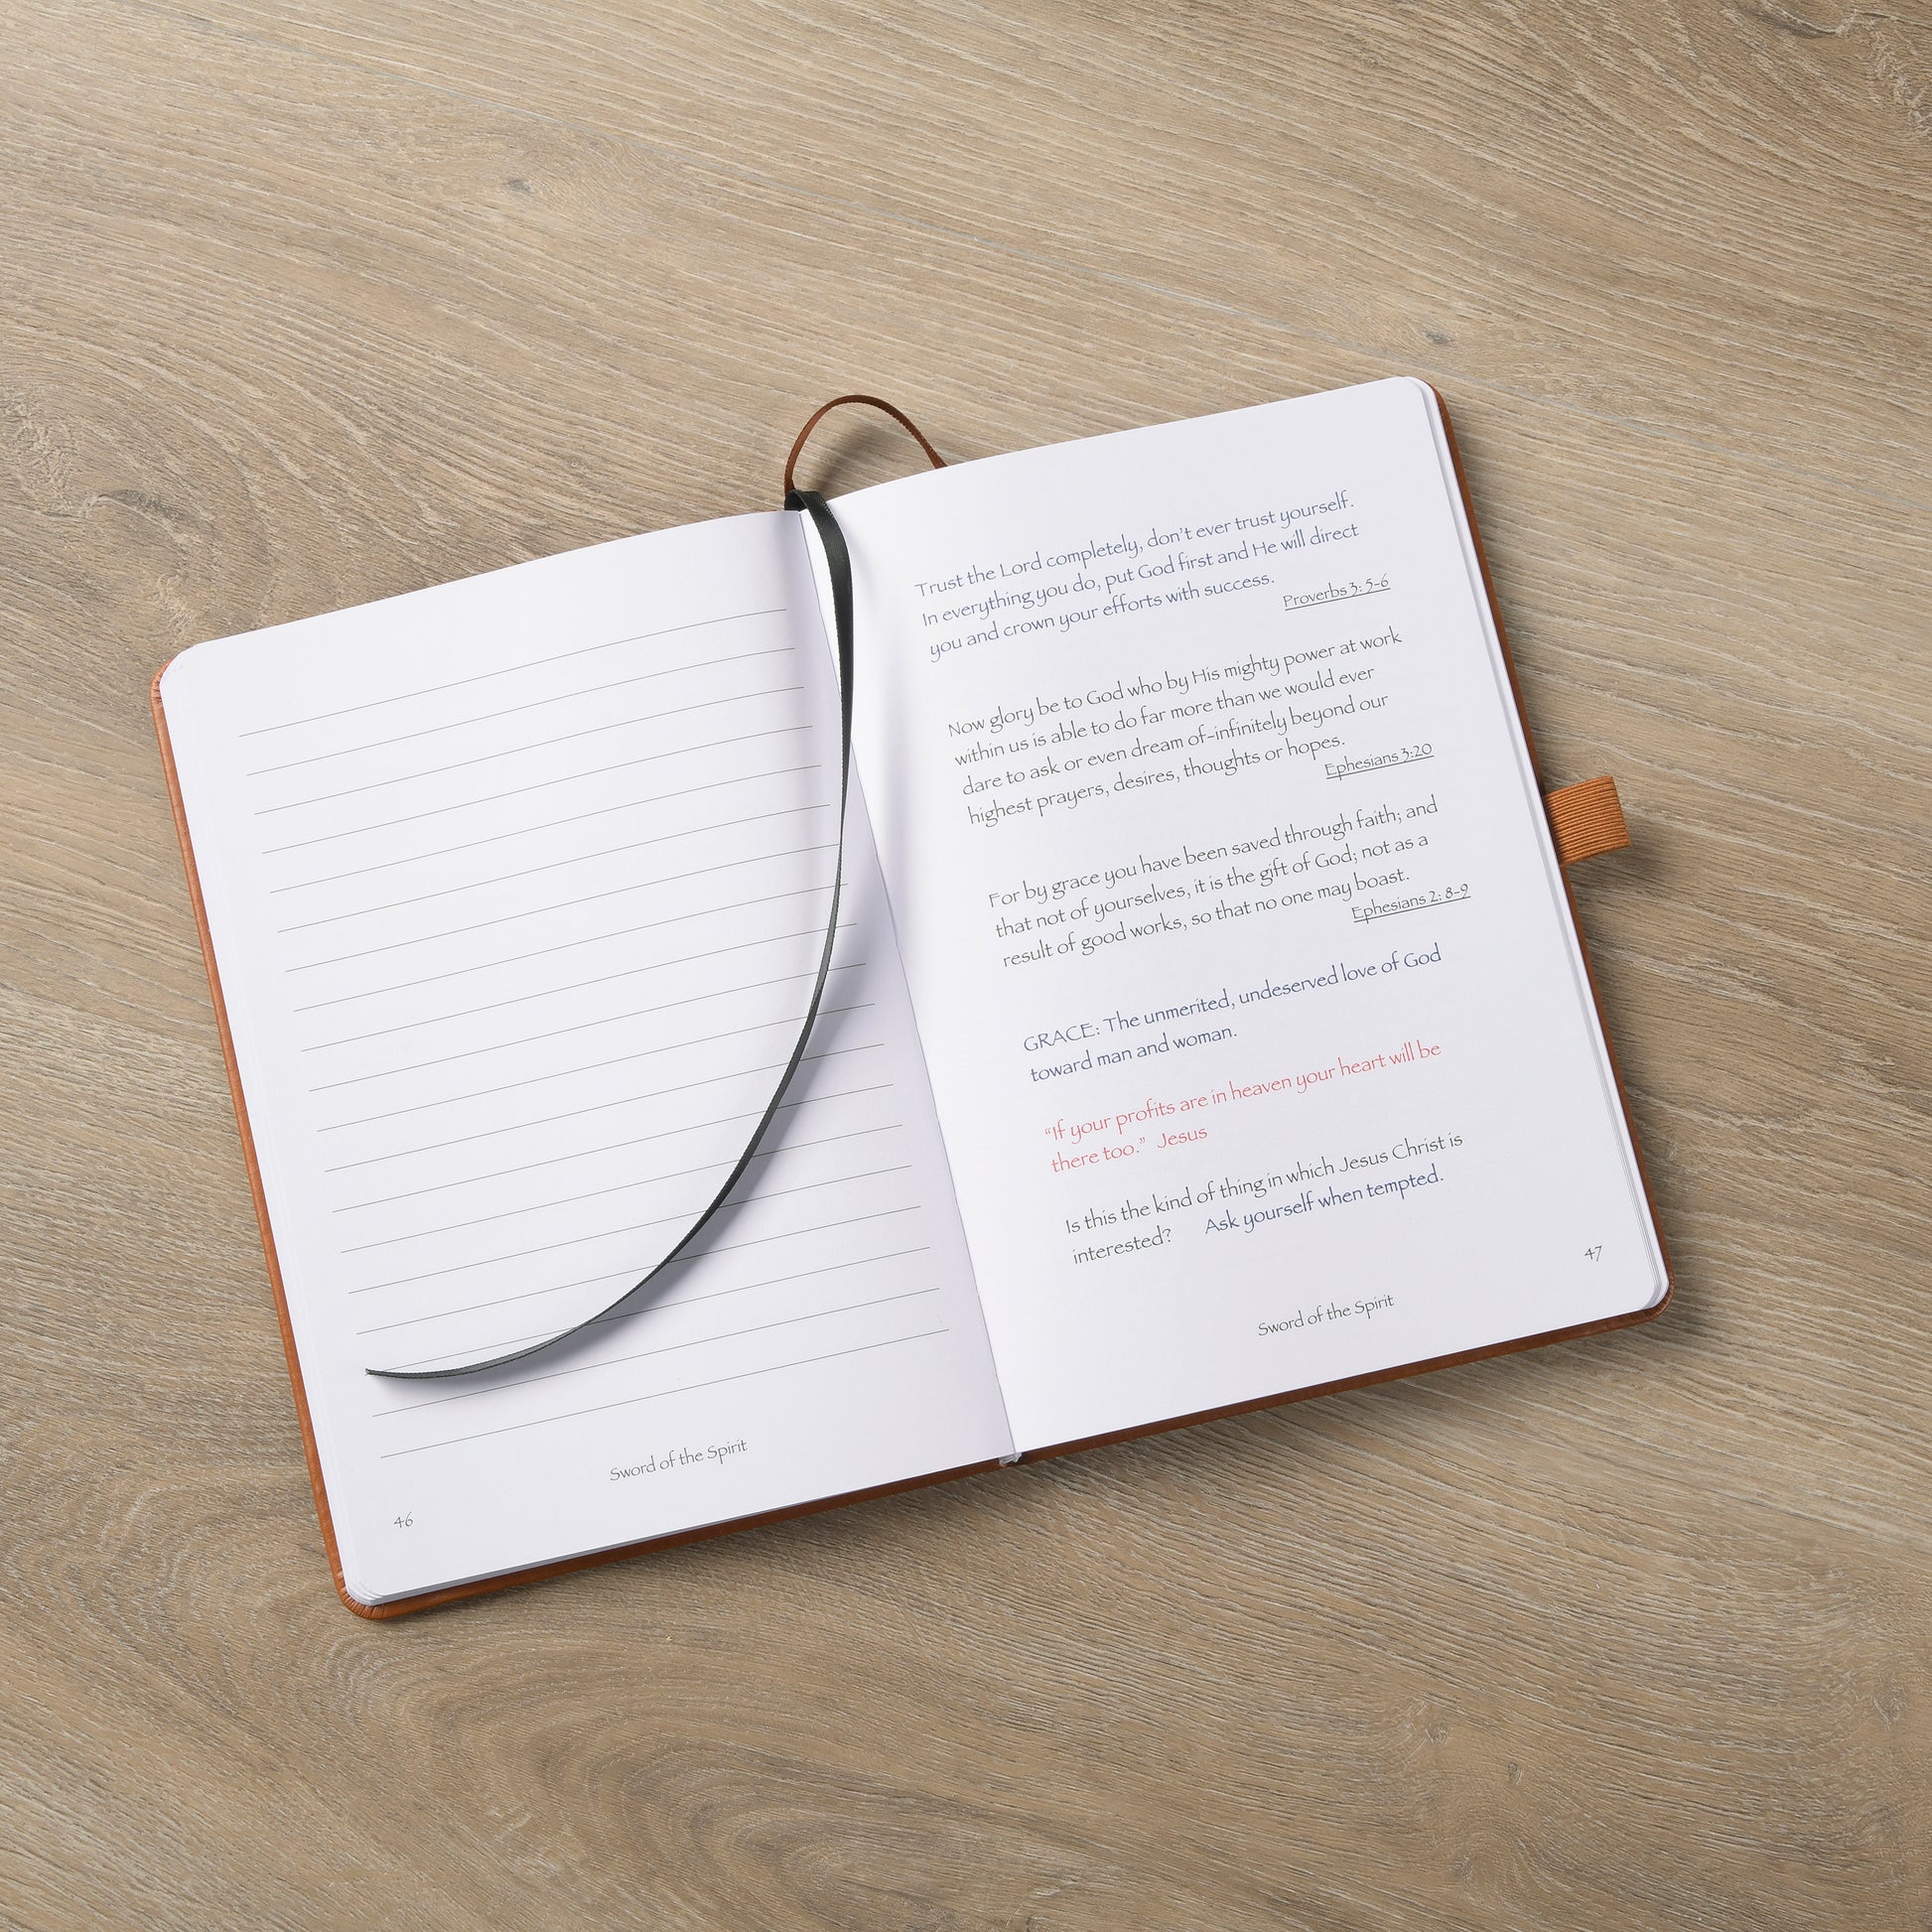 Sword of the Spirit
46
Trust the Lord completely, don't ever trust yourself.
In everything you do, put God first and He will direct
you and crown your efforts with success.
Proverbs 3: 5-6
Now glory be to God who by His mighty power at work
within us is able to do far more than we would ever
dare to ask or even dream of-infinitely beyond our
highest prayers, desires, thoughts or hopes.
Ephesians 3:20
For by grace you have been saved through faith; and
that not of yourselves, it is the gift of God; not as a
result of good works, so that no one may boast.
Ephesians 2: 8-9
GRACE: The unmerited, undeserved love of God
toward man and woman.
"If your profits are in heaven your heart will be
there too." Jesus
Is this the kind of thing in which Jesus Christ is
interested? Ask yourself when tempted.
47
Sword of the Spirit